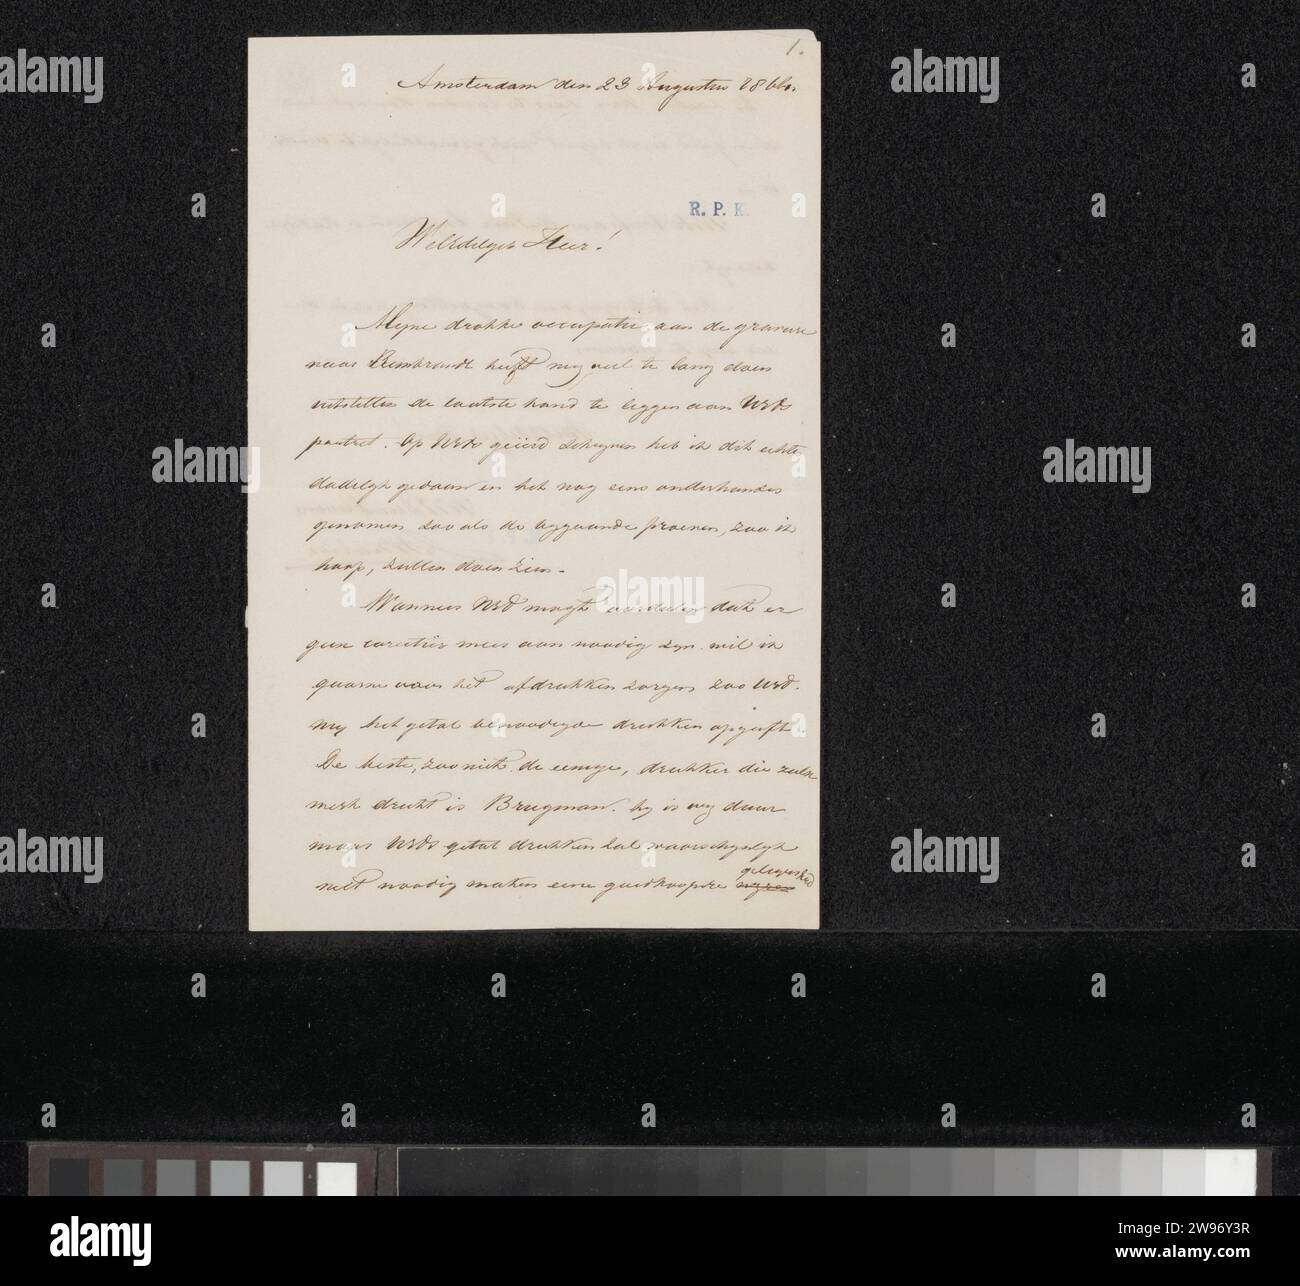 1.
Amsterdam den 23 Augustus 1866.
R. P. K.
WelEdelgeb Heer!
Mijne drukke occupatie aan de gravure
naar Rembrandt heeft mij veel te lang doen
uitstellen de laatste hand te leggen aan UEds
portret. Op UEds geëerd schrijven heb ik dit echter
dadelijk gedaan en het nog eens onderhanden
genomen zoo als de bijgaande proeven, zoo ik
hoop, zullen doen zien.
Wanneer UEd mogt oordeelen dat er
geen correctiën meer aan noodig zijn wil ik
gaarne voor het afdrukken zorgen zoo UEd.
mij het getal benoodigde drukken opgeeft.
De beste, zoo niet de eenige, drukker die
merk drukt is Brugman. hij is vrij duur
maar UEds getal drukken zal waarschijnlijk
niet noodig maken eene goedkoopere gelegenheid
alamy
a
alamy
Image ID: 2W96Y3R
www.alamy.com